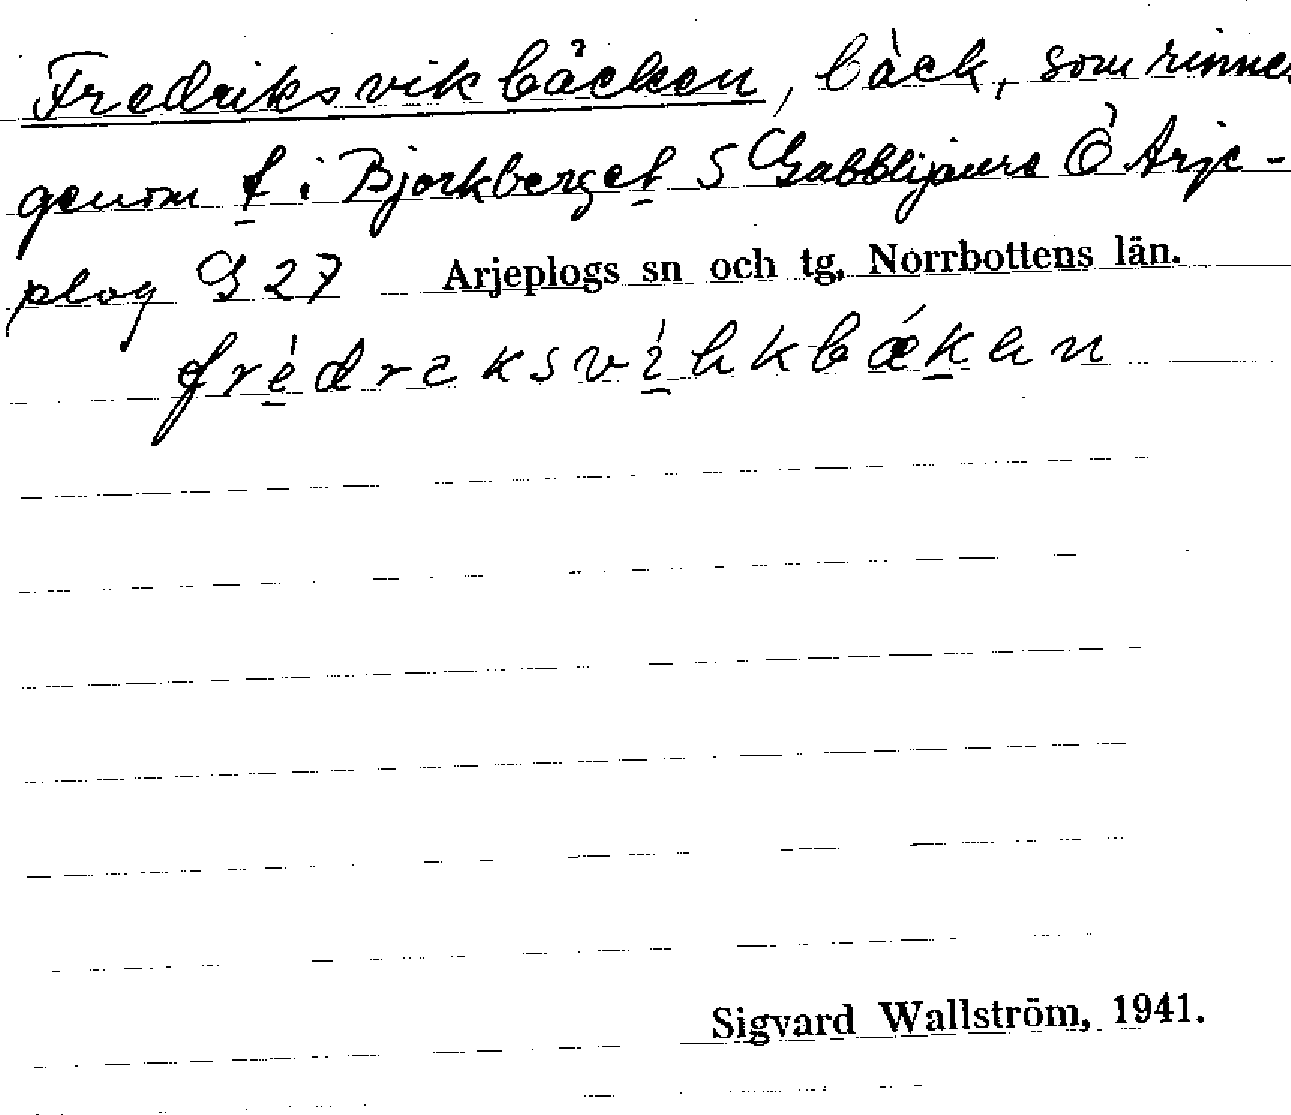 Fredriksvikbäcken, bäck, som rinner
genom f i Björkberget S Gabblijaure Ö Arje-
plog G 27 Arjeplogs sn och tg, Norrbottens län.
frédreksvíhkbǽkhn
Sigvard Wallström, 1941.